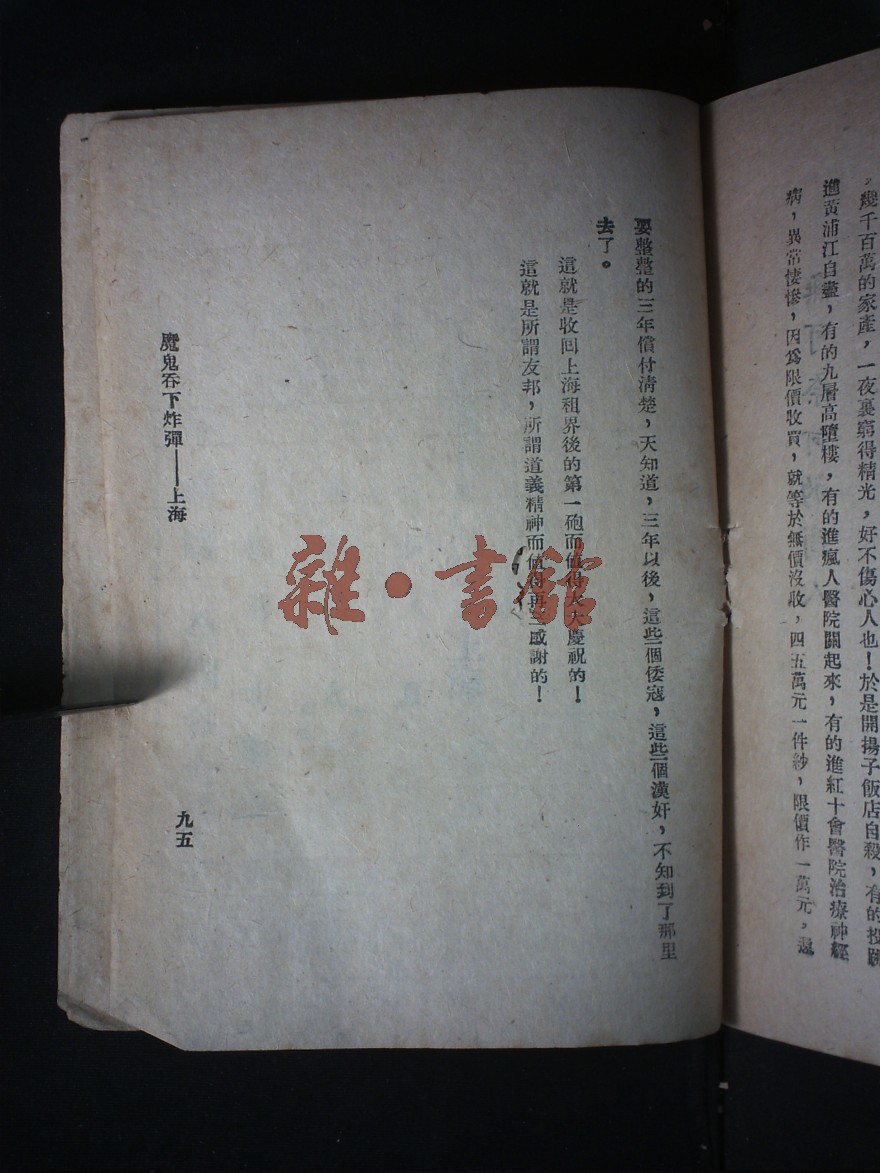 ，幾千百萬的家產，一夜裏窮得精光，好不傷心人也！於是開揚子飯店自殺，有的投跳
進黃浦江自盡，有的九層高墮樓，有的進瘋人醫院關起來，有的進紅十會醫院治療神經
病，異常悽慘，因爲限價收買，就等於無價沒收，四五萬元一件紗，限價作一萬元，還
要整整的三年償付清楚，天知道，三年以後，這些個倭寇，這些個漢奸，不知到了那里
去了。
這就是收回上海租界後的第一砲而值得大大慶祝的！
這就是所謂友邦，所謂道義精神而值得再三感謝的！
魔鬼吞下炸彈——上海
九五
雜·書館